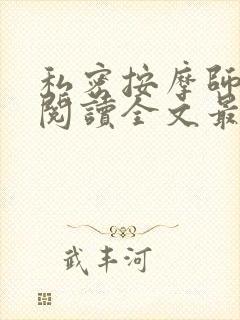 私密按摩師
閱讀全文最
武丰河